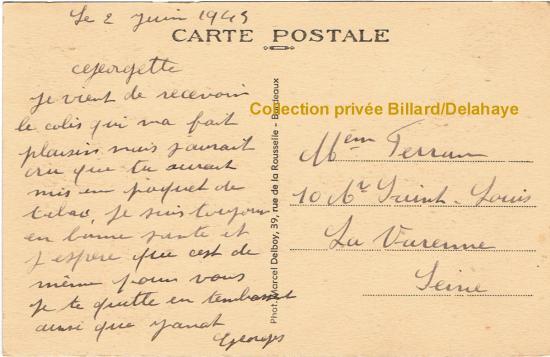 Le 2 Juin 1945
CARTE POSTALE
Georgette
Je vient de recevoir
le colis qui ma fait
plaisirs mais j'aurait
cru que tu aurait
mis un paquet de
tabac, je suis toujour
en bonne sante et
j'espère que c'est de
même pour vous
je te quitte en t'embrasset
ainsi que
Georges
Collection privée Billard/Delahaye
Phot. Marcel Delboy, 39, rue de la Rousselle - Bordeaux
Mem
10 Saint-Louis
La Varenne
Seine